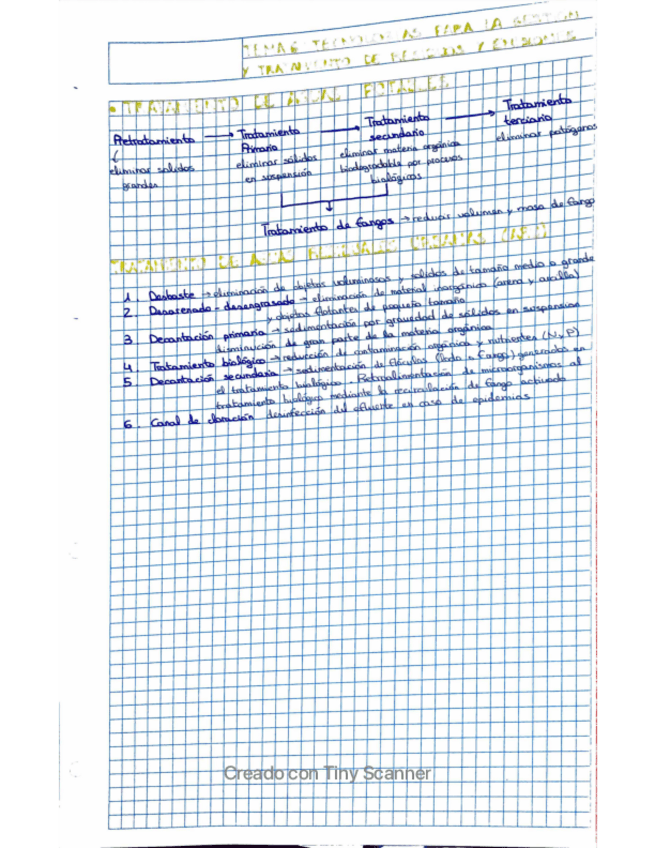 TEMA 6 TECNOLOGIAS PARA LA GESTION
Y TRATAMIENTO DE RESIDUOS Y EMISIONES
• TRATAMIENTO DE AGUAS POTABLES
Pretratamiento → Tratamiento Primario → Tratamiento secundario → Tratamiento terciario
eliminar solidos grandes
eliminar sólidos en suspensión
eliminar materia orgánica biodegradable por procesos biológicos
eliminar patógenos
Tratamiento de fangos → reducir volumen y masa de fango
TRATAMIENTO DE AGUAS RESIDUALES URBANAS
1. Desbaste → eliminación de objetos voluminosos y sólidos de tamaño medio o grande
2. Desarenado - desengrasado → eliminación de material inorgánico (arena y arcilla)
y objetos flotantes de pequeño tamaño
3. Decantación primaria → sedimentación por gravedad de sólidos en suspensión
disminución de gran parte de la materia orgánica
4. Tratamiento biológico → reducción de contaminación orgánica y nutrientes (N y P)
5. Decantación secundaria → sedimentación de flóculos (lodo o fango) generados en
el tratamiento biológico. Retroalimentación de microorganismos al
tratamiento biológico mediante la recirculación de fango activado
6. Canal de cloración desinfección del efluente en caso de epidemias
Creado con Tiny Scanner